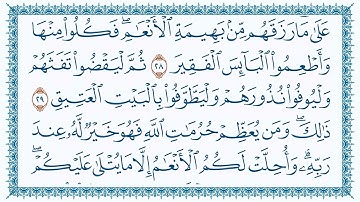 عَلَىٰ مَا رَزَقَهُم مِّنۢ بَهِيمَةِ ٱلْأَنْعَـٰمِ ۖ فَكُلُوا۟ مِنْهَا
وَأَطْعِمُوا۟ ٱلْبَآئِسَ ٱلْفَقِيرَ ٢٨ ثُمَّ لْيَقْضُوا۟ تَفَثَهُمْ
وَلْيُوفُوا۟ نُذُورَهُمْ وَلْيَطَّوَّفُوا۟ بِٱلْبَيْتِ ٱلْعَتِيقِ ٢٩
ذَٰلِكَ ۖ وَمَن يُعَظِّمْ حُرُمَـٰتِ ٱللَّهِ فَهُوَ خَيْرٌ لَّهُۥ عِندَ
رَبِّهِۦ ۗ وَأُحِلَّتْ لَكُمُ ٱلْأَنْعَـٰمُ إِلَّا مَا يُتْلَىٰ عَلَيْكُمْ ۖ